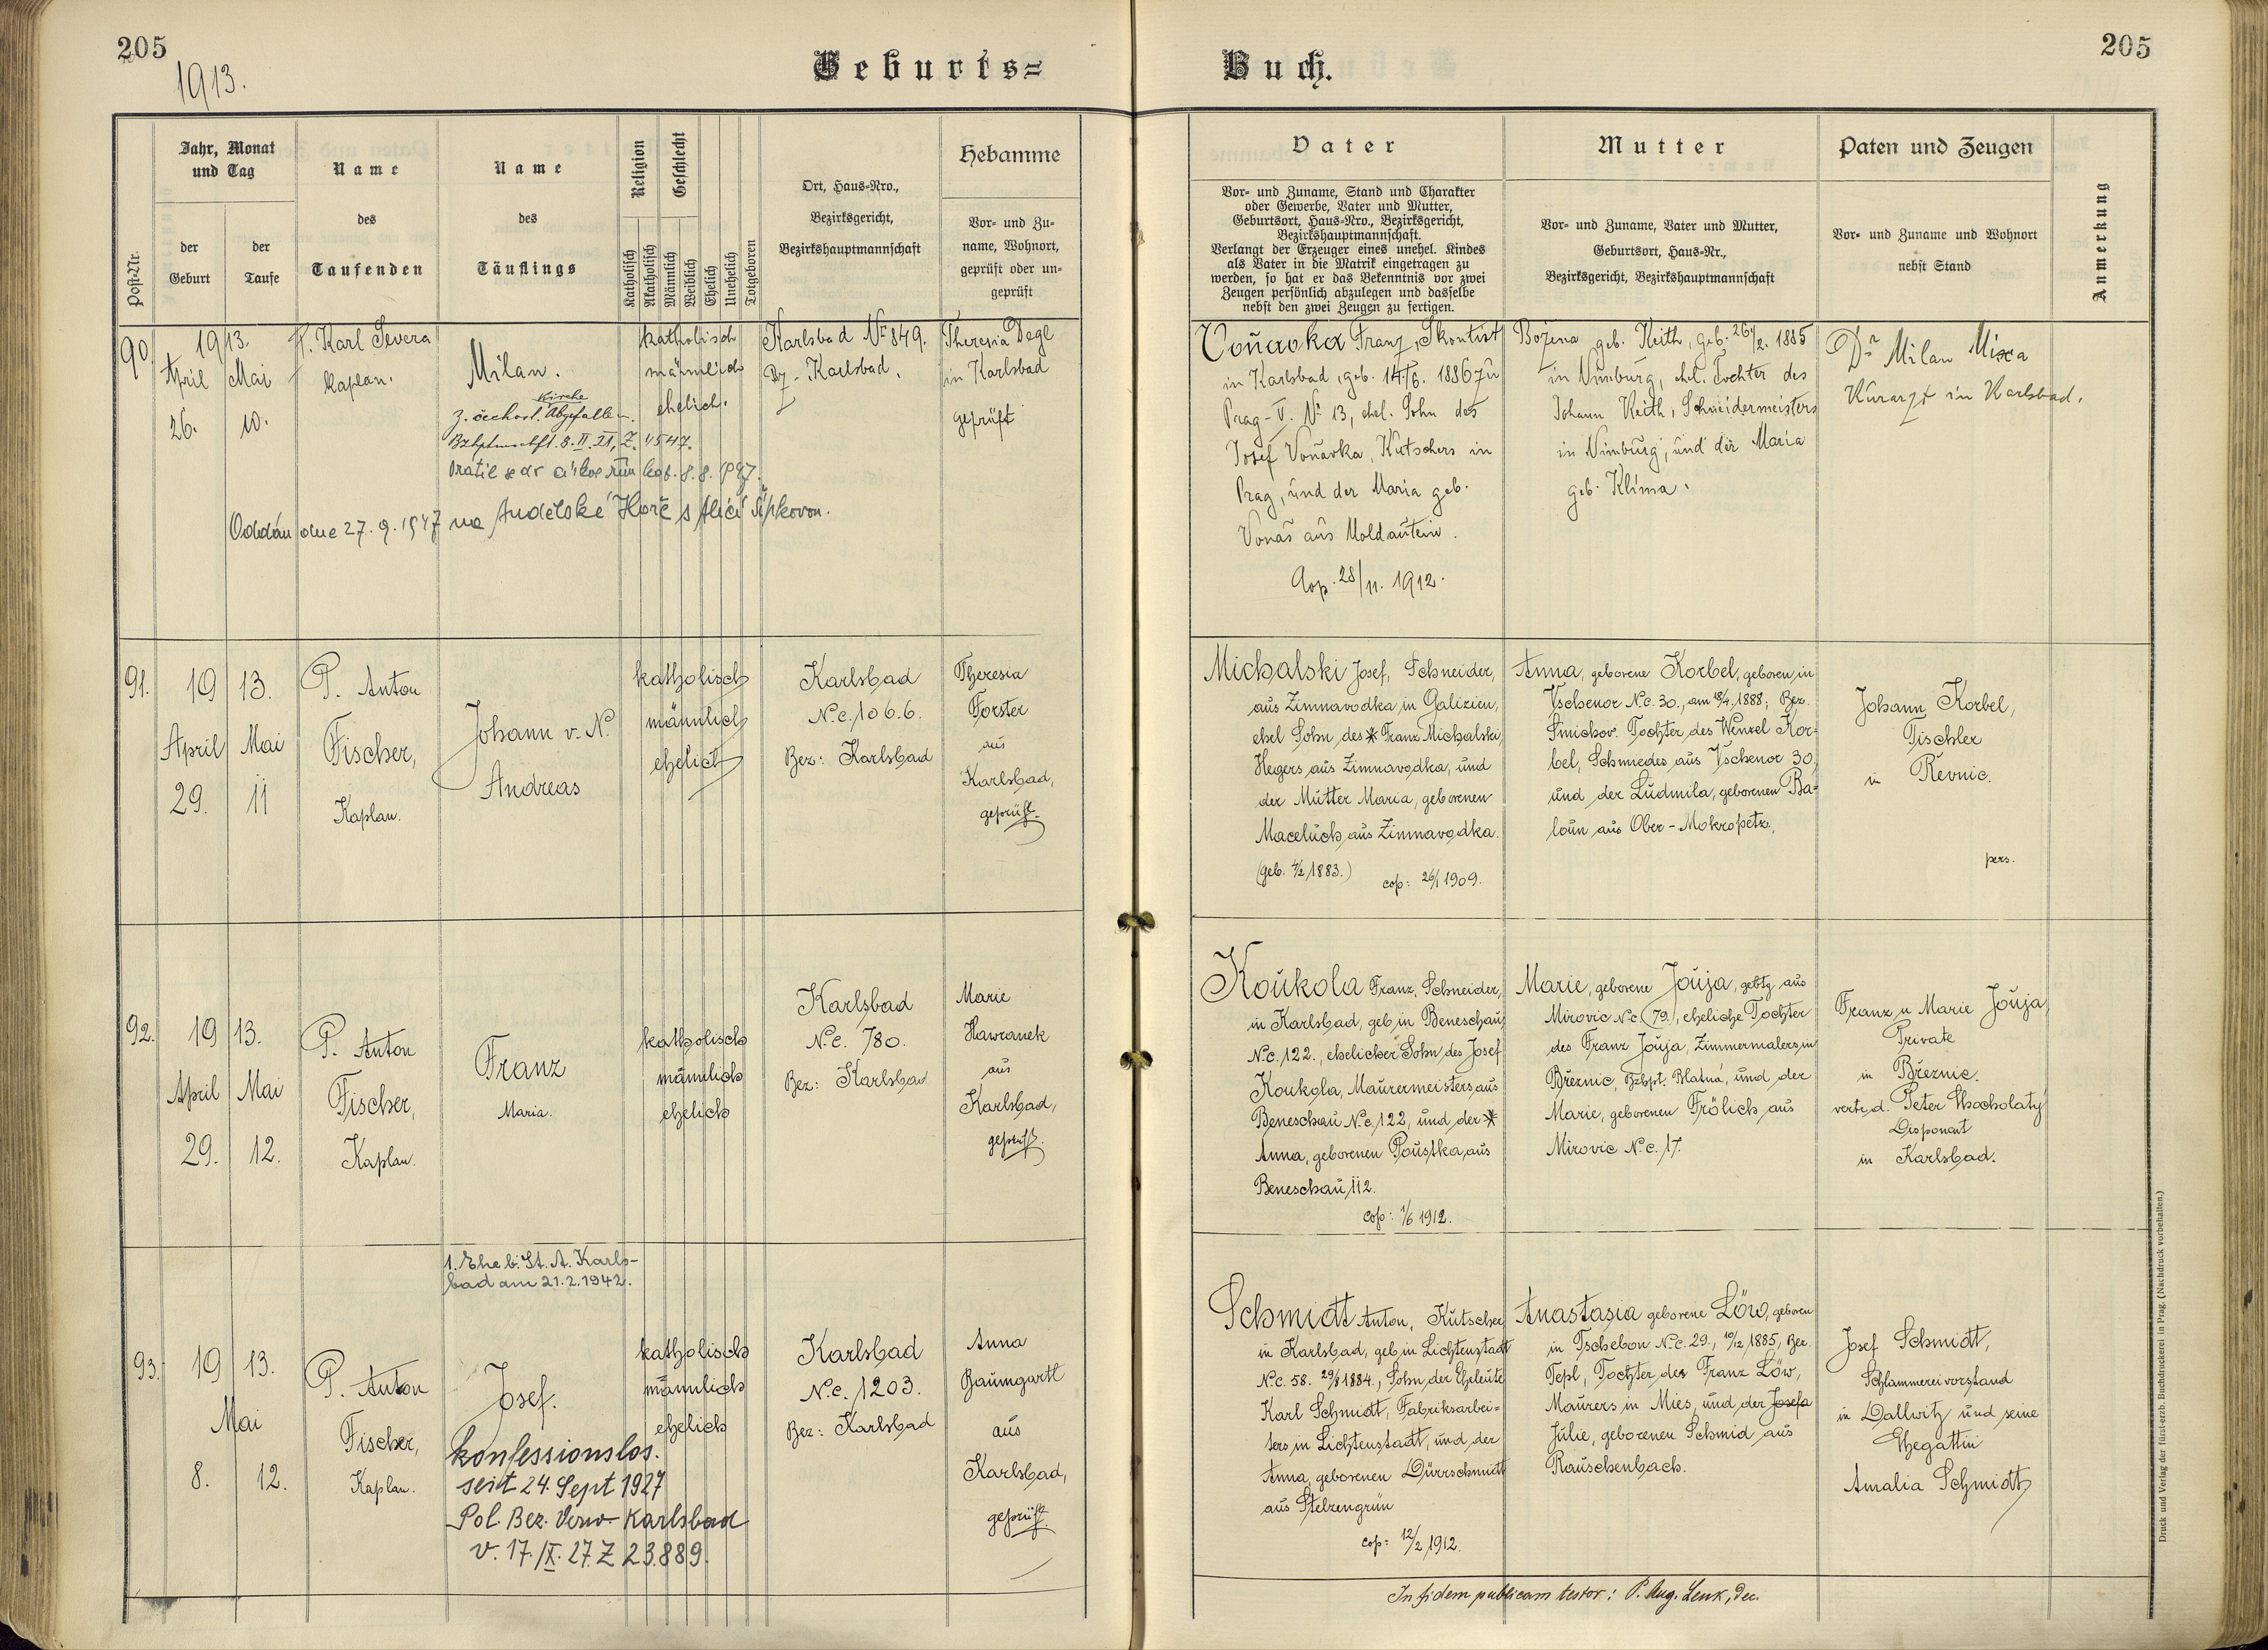 205
1913.
Geburts=
Buch.
205
Post-Nr.
Jahr, Monat
und Tag
der
Geburt
der
Taufe
Name
des
Taufenden
Name
des
Täuflings
Religion
Katholisch
Akatholisch
Geschlecht
Männlich
Weiblich
Ehelich
Unehelich
Totgeboren
Ort, Haus-Nro.,
Bezirksgericht,
Bezirkshauptmannschaft
Hebamme
Vor- und Zu-
name, Wohnort,
geprüft oder un-
geprüft
Vater
Vor- und Zuname, Stand und Charakter
oder Gewerbe, Vater und Mutter,
Geburtsort, Haus-Nro., Bezirksgericht,
Bezirkshauptmannschaft.
Verlangt der Erzeuger eines unehel. Kindes
als Vater in die Matrik eingetragen zu
werden, so hat er das Bekenntnis vor zwei
Zeugen persönlich abzulegen und dasselbe
nebst den zwei Zeugen zu fertigen.
Mutter
Vor- und Zuname, Vater und Mutter,
Geburtsort, Haus-Nr.,
Bezirksgericht, Bezirkshauptmannschaft
Paten und Zeugen
Vor- und Zuname und Wohnort
nebst Stand
Anmerkung
90
1913.
April
26.
Mai
10.
P. Karl Severa
Kaplan.
Milan.
Kirche
z. čechosl. Abgefallen.
Bzhptmschft. 8.II.21, Z. 4547.
Vrátil se do církve řím. kat. 8.8.1947.
Oddán dne 27.9.1947 na Andělské Hoře s Alicí Šípkovou.
katholisch
männlich
ehelich.
Karlsbad No 849.
Bz. Karlsbad.
Theresia Degl
in Karlsbad
geprüft
Voňavka Franz, Skontist
in Karlsbad, geb. 14./6. 1886 zu
Prag-V. No 13, ehel. Sohn des
Josef Voňavka, Kutschers in
Prag, und der Maria geb.
Vonáš aus Moldautein.
Cop. 28/11. 1912.
Božena geb. Keith, geb. 26/2. 1885
in Nimburg, ehel. Tochter des
Johann Keith, Schneidermeisters
in Nimburg, und der Maria
geb. Klíma.
Dr Milan Mixa
Kurarzt in Karlsbad.
91.
19 13.
April
29.
Mai
11
P. Anton
Fischer,
Kaplan.
Johann v. N.
Andreas
katholisch
männlich
ehelich
Karlsbad
N.c. 1066.
Bez: Karlsbad
Theresia
Forster
aus
Karlsbad,
geprüft.
Michalski Josef, Schneider,
aus Zimnavodka in Galizien,
ehel Sohn des * Franz Michalski,
Hegers aus Zimnavodka, und
der Mutter Maria, geborenen
Maceluch aus Zimnavodka.
(geb. 4/2 1883.)
cop: 26/1 1909.
Anna, geborene Korbel, geboren in
Vschenor N.c. 30., am 18/4. 1888; Bez.
Smichov. Tochter des Wenzel Kor-
bel, Schmiedes aus Vschenor 30,
und der Ludmila, geborenen Ba-
loun aus Ober-Mokropetz.
Johann Korbel,
Tischler
in Řevnic.
pers.
92.
19 13.
April
29.
Mai
12.
P. Anton
Fischer,
Kaplan.
Franz
Maria.
katholisch
männlich
ehelich
Karlsbad
N.c. 780.
Bez: Karlsbad
Marie
Hawranek
aus
Karlsbad,
geprüft.
Koukola Franz, Schneider,
in Karlsbad, geb in Beneschau,
N.c. 122., ehelicher Sohn des Josef
Koukola, Maurermeisters aus
Beneschau N.c. 122, und der *
Anna, geborenen Poustka, aus
Beneschau 112.
cop: 1/6 1912.
Marie, geborene Jouja, gebtg aus
Mirovic N.c. (79.), eheliche Tochter
des Franz Jouja, Zimmermalers, in
Březnic, Bzhpt. Blatná, und der
Marie, geborenen Frölich aus
Mirovic N.c. 17.
Franz u Marie Jouja,
Private
in Březnic.
vert. d. Peter Chocholatý
Disponent
in Karlsbad.
1. Ehe b. St. A. Karls-
bad am 21.2.1942.
93.
19 13.
Mai
8.
12.
P. Anton
Fischer,
Kaplan.
Josef.
konfessionslos.
seit 24. Sept 1927
Pol. Bez. Verw. Karlsbad
v. 17./IX. 27. Z 23.889.
katholisch
männlich
ehelich
Karlsbad
N.c. 1203.
Bez: Karlsbad
Anna
Baumgartl
aus
Karlsbad,
geprüft.
Schmidt Anton, Kutscher
in Karlsbad, geb in Lichtenstadt
N.c. 58. 29/8 1884., Sohn der Eheleute
Karl Schmidt, Fabriksarbei-
ters in Lichtenstadt, und der
Anna, geborenen Dürrschmidt
aus Stelzengrün
cop: 12/2 1912.
Anastasia geborene Löw, geboren
in Tschebon N.c. 29., 10/12 1885, Bez.
Tepl, Tochter des Franz Löw,
Maurers in Mies, und der Josefa
Julie, geborenen Schmid aus
Rauschenbach.
Josef Schmidt,
Schlammereivorstand
in Dallwitz und seine
Ehegattin
Amalia Schmidt
In fidem publicam testor: P. Aug. Lenk, Dec.
Druck und Verlag der fürst-erzb. Buchdruckerei in Prag. (Nachdruck vorbehalten.)